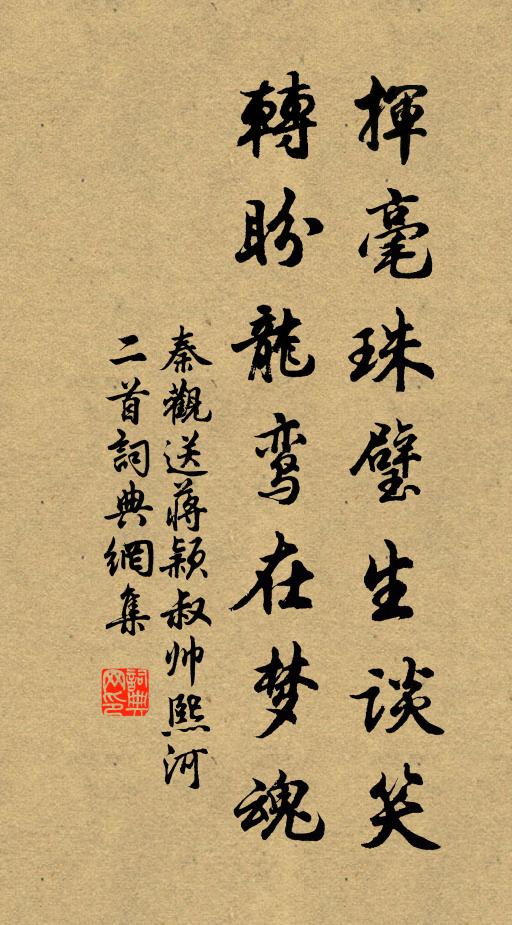 揮毫珠璧生谈笑
轉盼龍鸾在梦魂
秦觀送蔣颖叔帅熙河
二首詞典網集
詞典
网印